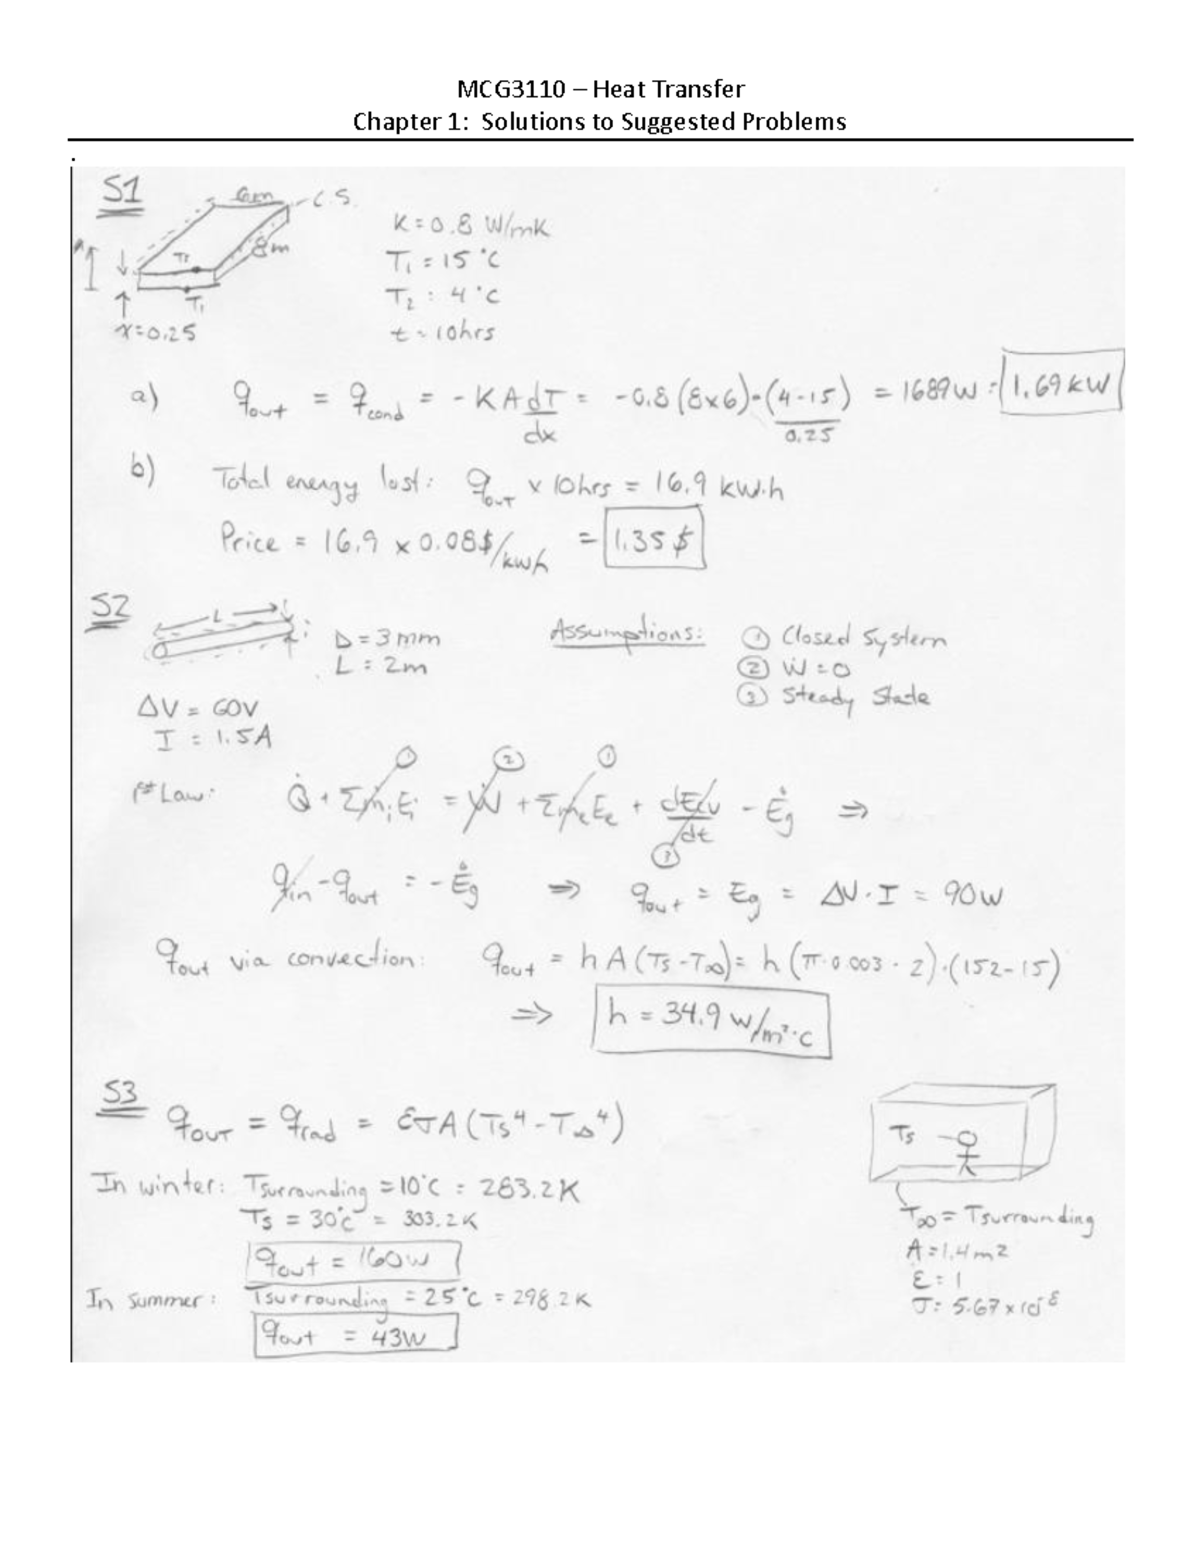 MCG3110 – Heat Transfer
Chapter 1: Solutions to Suggested Problems
.
S1
6m
C.S.
8m
T2
T1
x=0.25
K = 0.8 W/mK
T1 = 15 °C
T2 : 4 °C
t ~ 10hrs
a) qout = qcond = -KA dT/dx = -0.8 (8x6)·(4-15)/0.25 = 1689W = 1.69 kW
b) Total energy lost: qout x 10hrs = 16.9 kW·h
Price = 16.9 x 0.08$/kwh = 1.35$
S2
L
D = 3mm
L : 2m
Assumptions: ① Closed System
② Ẇ = 0
③ Steady State
ΔV = 60V
I = 1.5A
1st Law: Q̇ + Σṁi Ei = Ẇ + Σṁe Ee + dEcv/dt - Ėg ⇒
① ② ① ③
qin - qout = - Ėg ⇒ qout = Eg = ΔV·I = 90W
qout via convection: qout = hA(Ts-T∞) = h(π·0.003·2)·(152-15)
⇒ h = 34.9 W/m²·C
S3
qout = qrad = εσA(Ts⁴ - T∞⁴)
In winter: Tsurrounding = 10°C = 283.2K
Ts = 30°C = 303.2K
qout = 160W
In summer: Tsurrounding = 25°C = 298.2K
qout = 43W
Ts
T∞ = Tsurrounding
A = 1.4m2
ε = 1
σ = 5.67 x 10⁻⁸